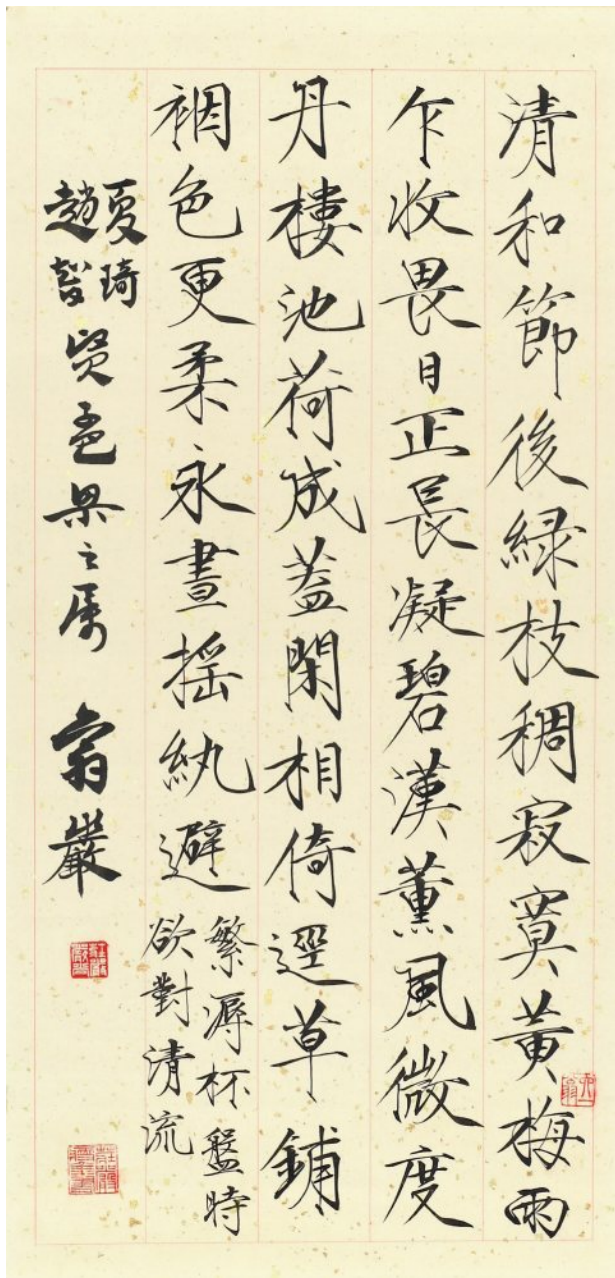 清和節後綠枝稠寂寞黃梅雨
乍收畏日正長凝碧漢薰風微度
丹樓池荷成蓋閑相倚逕草鋪
裀色更柔永晝搖紈避
繁溽杯盤時
欲對清流
夏琦
趙
賢孟之屬
翁嚴